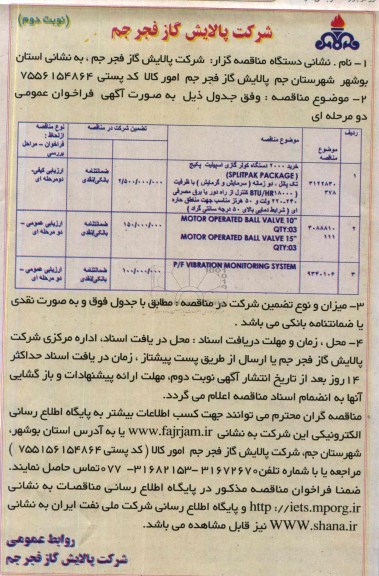 (نوبت دوم)
شرکت پالایش گاز فجر جم
۱- نام . نشانی دستگاه مناقصه گزار: شرکت پالایش گاز فجر جم ، به نشانی استان
بوشهر شهرستان جم پالایش گاز فجر جم امور کالا کد پستی ۷۵۵۶۱۵۴۸۶۴
۲- موضوع مناقصه : وفق جدول ذیل به صورت آگهی فراخوان عمومی
دو مرحله ای
ردیف موضوع مناقصه تضمین شرکت در مناقصه نوع مناقصه
مناقصه موضوع ازلحاظ :
فراخوان – مراحل
بررسی
۱ خرید ۲۰۰۰ دستگاه کولر گازی اسپیلت پکیج
(SPLITPAK PACKAGE )
تک پانل ، دو زمانه ( سرمایش و گرمایش ) با ظرفیت
BTU/HR۱۸۰۰۰ کنترل از راه دور با برق مصرفی
۲۲۰-۲۴۰ ولت و ۵۰ هرتز مناسب جهت مناطق حاره
ای ( شرایط دمایی بالای ۵۰ درجه سانتی گراد )
۲/۵۰۰/۰۰۰/۰۰۰ ضمانتنامه بانکی/نقدی ارزیابی کیفی- دومرحله ای
۲ MOTOR OPERATED BALL VALVE 10"
QTY:03
MOTOR OPERATED BALL VALVE 15"
QTY:03
۱۵۰/۰۰۰/۰۰۰ ضمانتنامه بانکی/نقدی ارزیابی عمومی – دو مرحله ای
۳ P/F VIBRATION MONITORING SYSTEM
۱۰۰/۰۰۰/۰۰۰ ضمانتنامه بانکی/نقدی ارزیابی عمومی – دو مرحله ای
۳- میزان و نوع تضمین شرکت در مناقصه : مطابق با جدول فوق و به صورت نقدی
یا ضمانتنامه بانکی می باشد .
۴- محل ، زمان و مهلت دریافت اسناد : محل در یافت اسناد، اداره مرکزی شرکت
پالایش گاز فجر جم یا ارسال از طریق پست پیشتاز ، زمان در یافت اسناد حداکثر
۱۴ روز بعد از تاریخ انتشار آگهی نوبت دوم، مهلت ارائه پیشنهادات و باز گشایی
آنها به انضمام اسناد مناقصه اعلام می گردد.
مناقصه گران محترم می توانند جهت کسب اطلاعات بیشتر به پایگاه اطلاع رسانی
الکترونیکی این شرکت به نشانی www.fajrjam.ir یا به آدرس استان بوشهر،
شهرستان جم، شرکت پالایش گاز فجر جم امور کالا ( کد پستی ۷۵۵۱۵۶۱۵۴۸۶۴ )
مراجعه یا با شماره تلفن ۳۱۶۷۲۶۷۰ -۳۱۶۸۲۱۵۳- ۰۷۷ تماس حاصل نمایند.
ضمنا فراخوان مناقصه مذکور در پایگاه اطلاع رسانی مناقصات به نشانی
http ://iets.mporg.ir و پایگاه اطلاع رسانی شرکت ملی نفت ایران به نشانی
WWW.shana.ir نیز قابل مشاهده می باشد.
روابط عمومی
شرکت پالایش گاز فجر جم